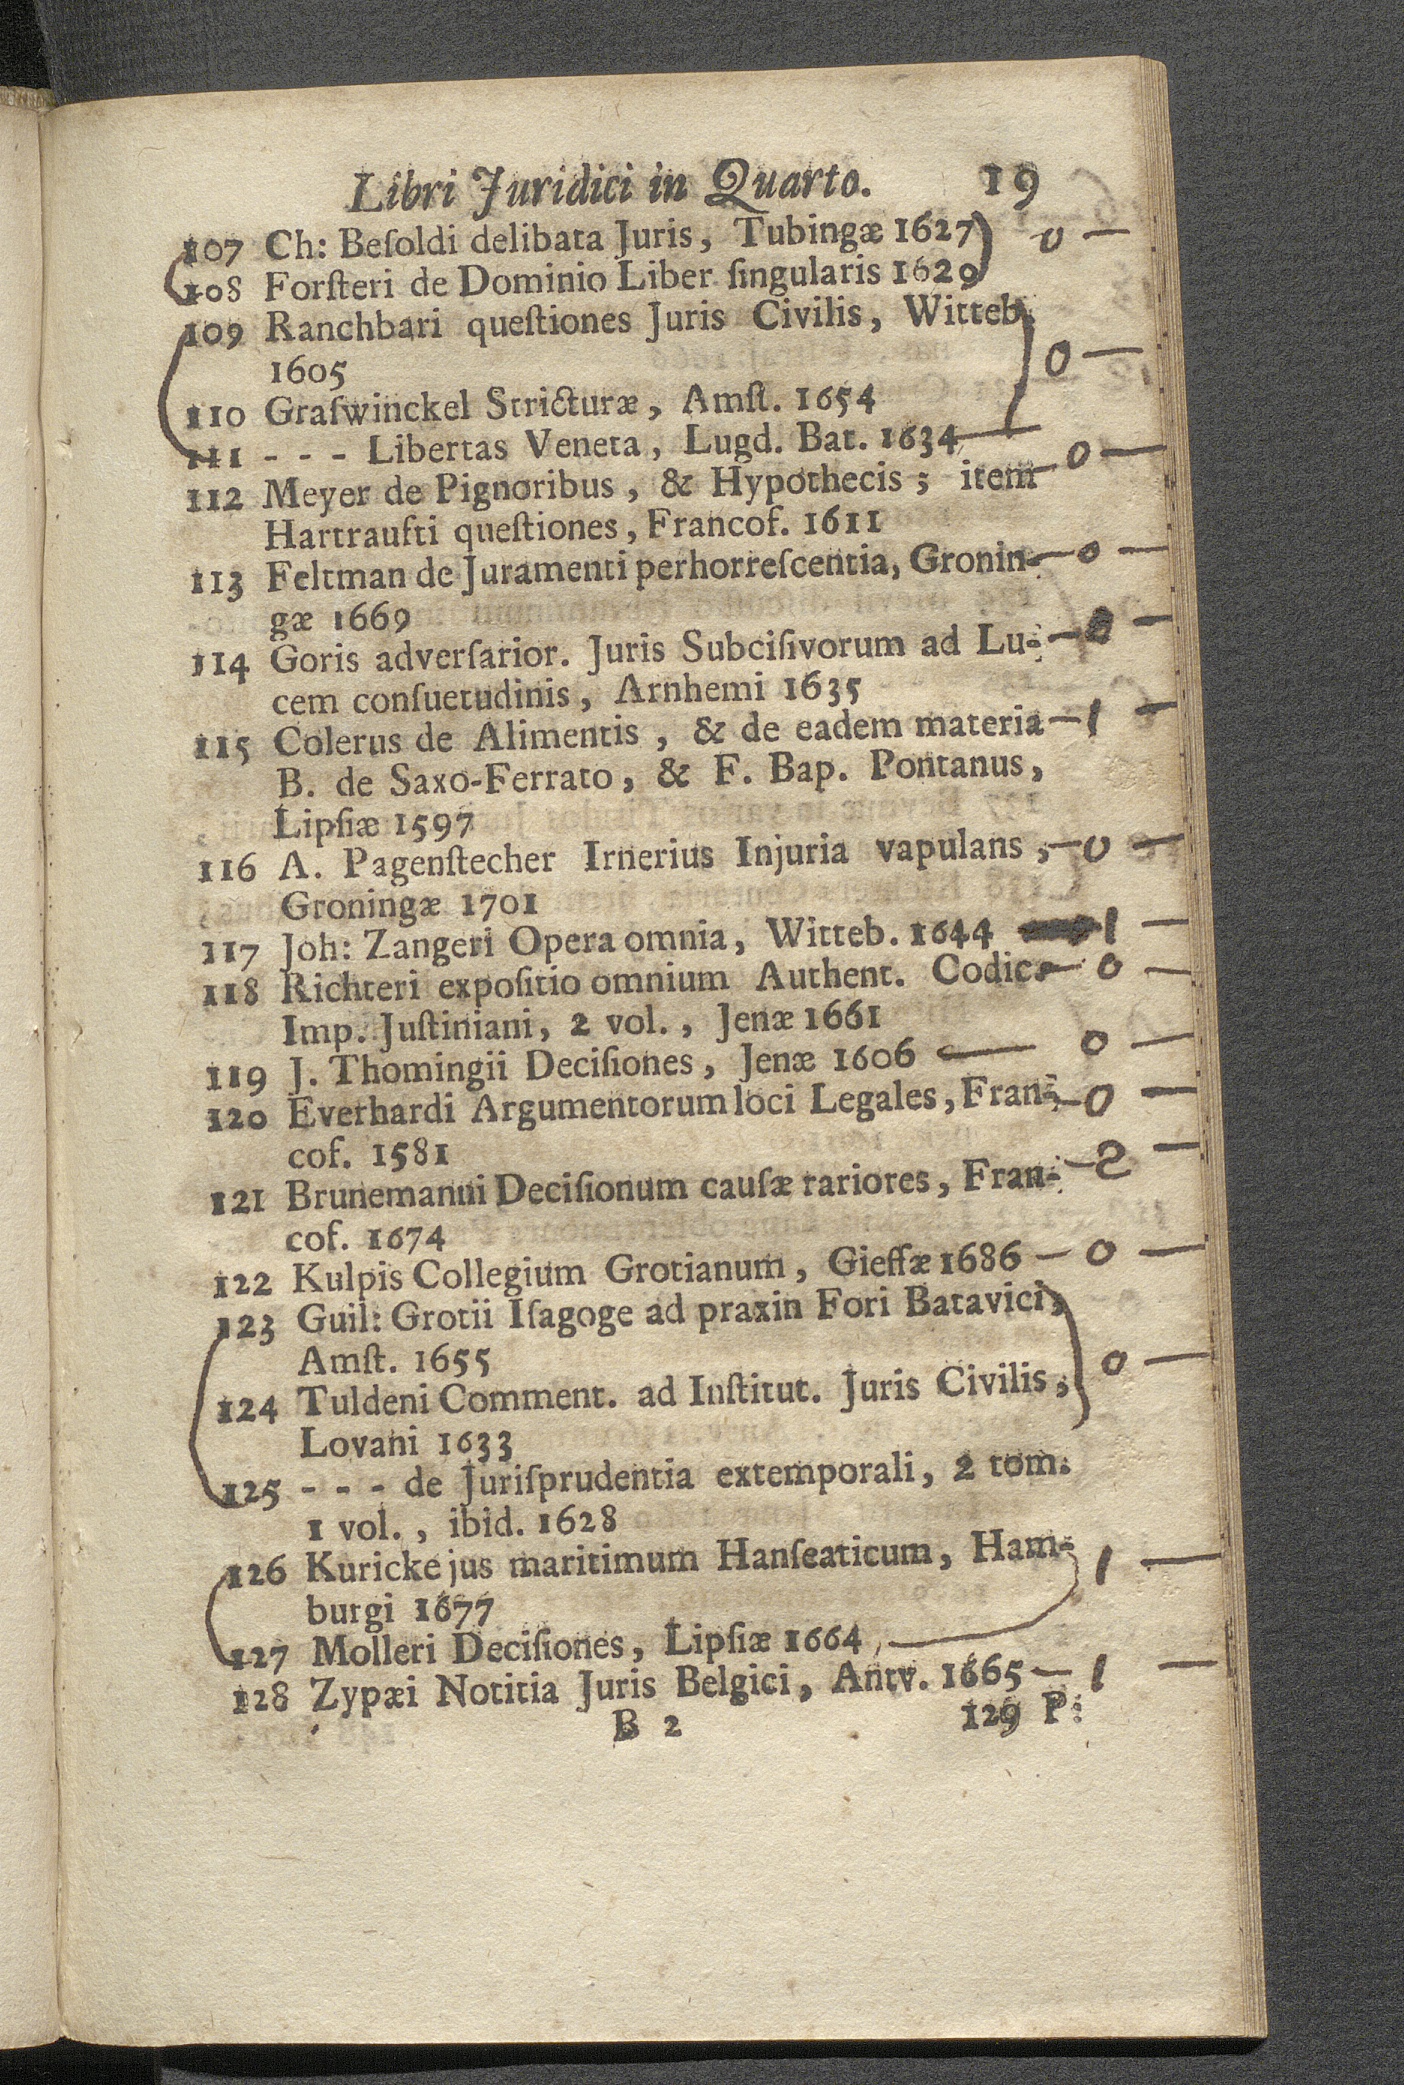 Libri Juridici in Quarto. 19
107 Ch: Beſoldi delibata Juris, Tubingæ 1627 0 —
108 Forſteri de Dominio Liber ſingularis 1629
109 Ranchbari queſtiones Juris Civilis, Witteb.
1605 0 —
110 Graſwinckel Stricturæ, Amſt. 1654
111 - - - Libertas Veneta, Lugd. Bat. 1634
112 Meyer de Pignoribus, & Hypothecis; item — 0 —
Hartraufti queſtiones, Francof. 1611
113 Feltman de Juramenti perhorreſcentia, Gronin- — 0 —
gæ 1669
114 Goris adverſarior. Juris Subciſivorum ad Lu- — 0 —
cem conſuetudinis, Arnhemi 1635
115 Colerus de Alimentis, & de eadem materia — 1 —
B. de Saxo-Ferrato, & F. Bap. Pontanus,
Lipſiæ 1597
116 A. Pagenſtecher Irnerius Injuria vapulans, — 0 —
Groningæ 1701
117 Joh: Zangeri Opera omnia, Witteb. 1644 1 —
118 Richteri expoſitio omnium Authent. Codic. — 0 —
Imp. Juſtiniani, 2 vol., Jenæ 1661
119 J. Thomingii Deciſiones, Jenæ 1606 — 0 —
120 Everhardi Argumentorum loci Legales, Fran- — 0 —
cof. 1581
121 Brunemanni Deciſionum cauſæ rariores, Fran- — 2 —
cof. 1674
122 Kulpis Collegium Grotianum, Gieſſæ 1686 — 0 —
123 Guil: Grotii Iſagoge ad praxin Fori Batavici,
Amſt. 1655 0 —
124 Tuldeni Comment. ad Inſtitut. Juris Civilis,
Lovani 1633
125 - - - de Jurisprudentia extemporali, 2 tom.
1 vol., ibid. 1628
126 Kuricke jus maritimum Hanſeaticum, Ham- 1 —
burgi 1677
127 Molleri Deciſiones, Lipſiæ 1664
128 Zypæi Notitia Juris Belgici, Antv. 1665 — 1 —
B 2 129 P: